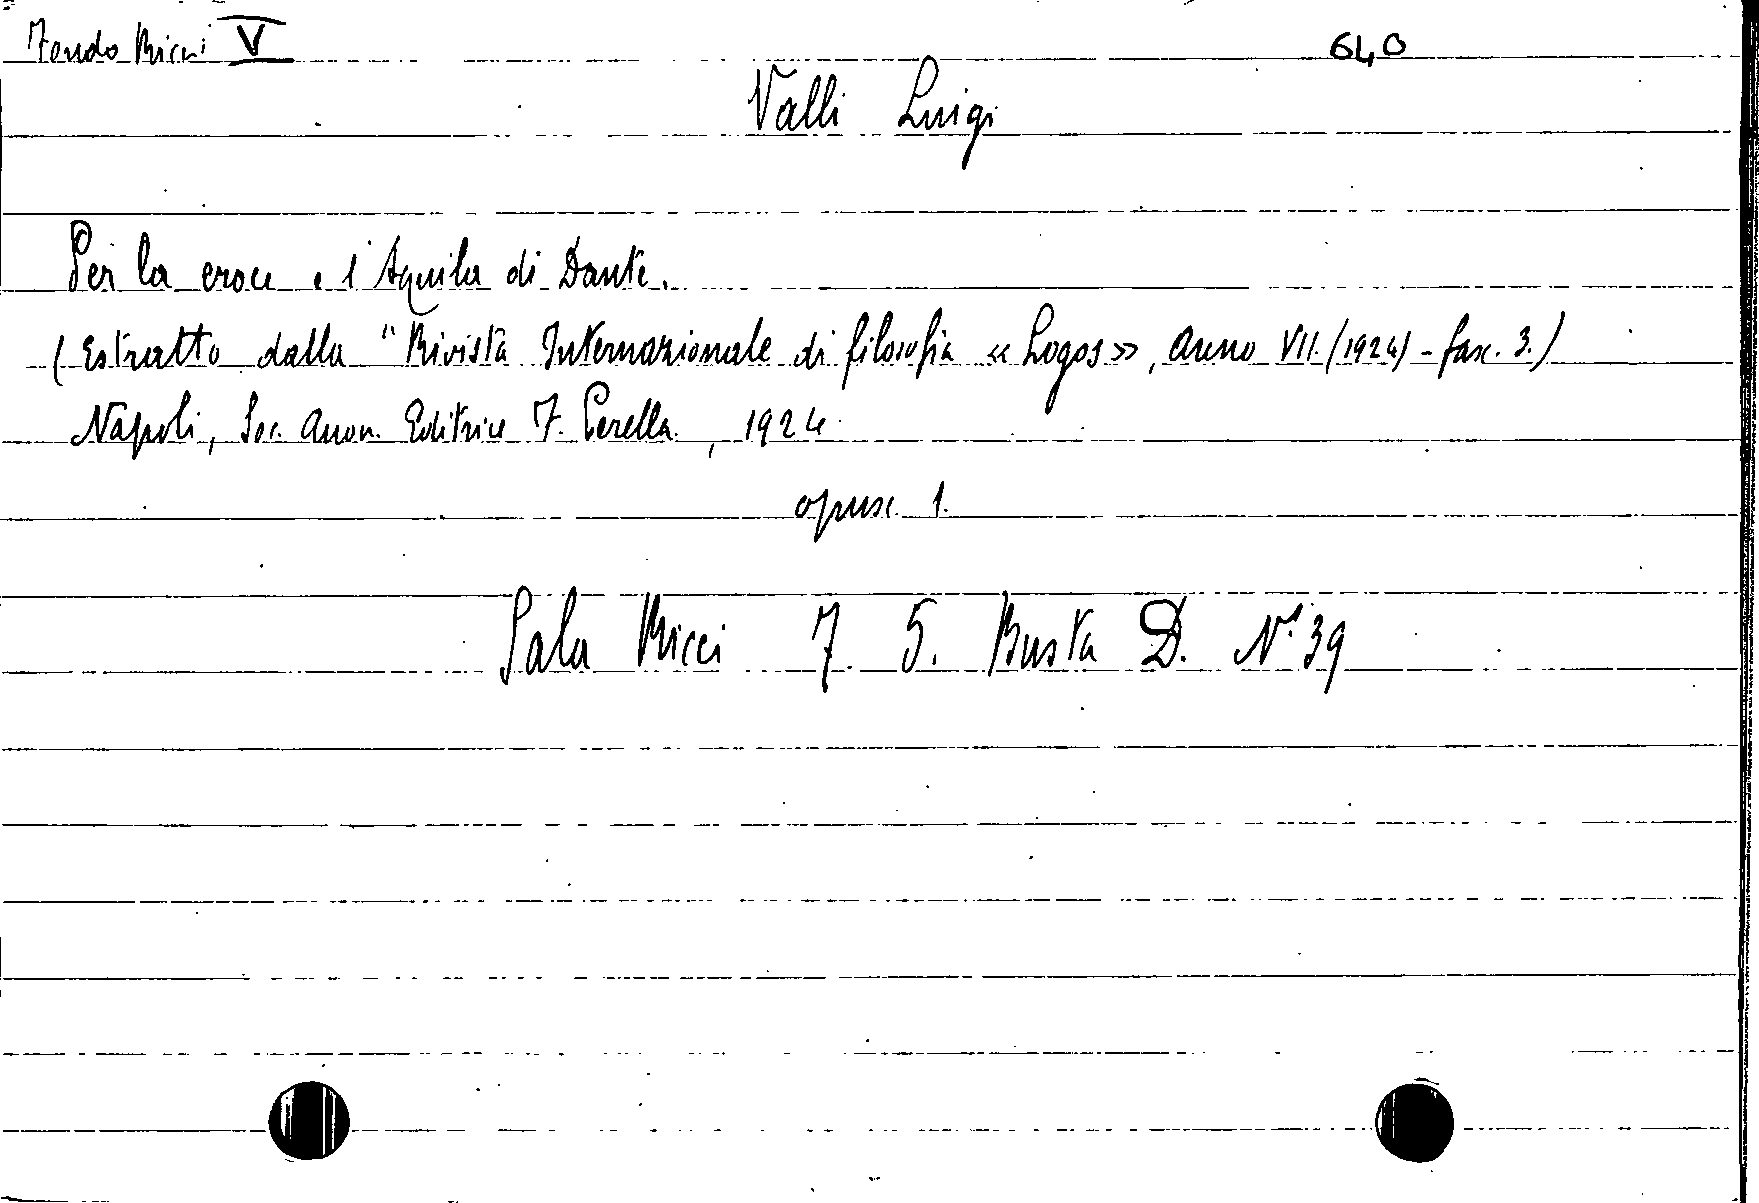 Fondo Ricci V 640
Valli Luigi
Per la croce e l'Aquila di Dante.
(Estratto dalla "Rivista Internazionale di filosofia «Logos», anno VII. (1924) - fasc. 3.)
Napoli, Soc. Anon. Editrice F. Perella, 1924
opusc. 1.
Sala Ricci F. 5. Busta D. N° 39